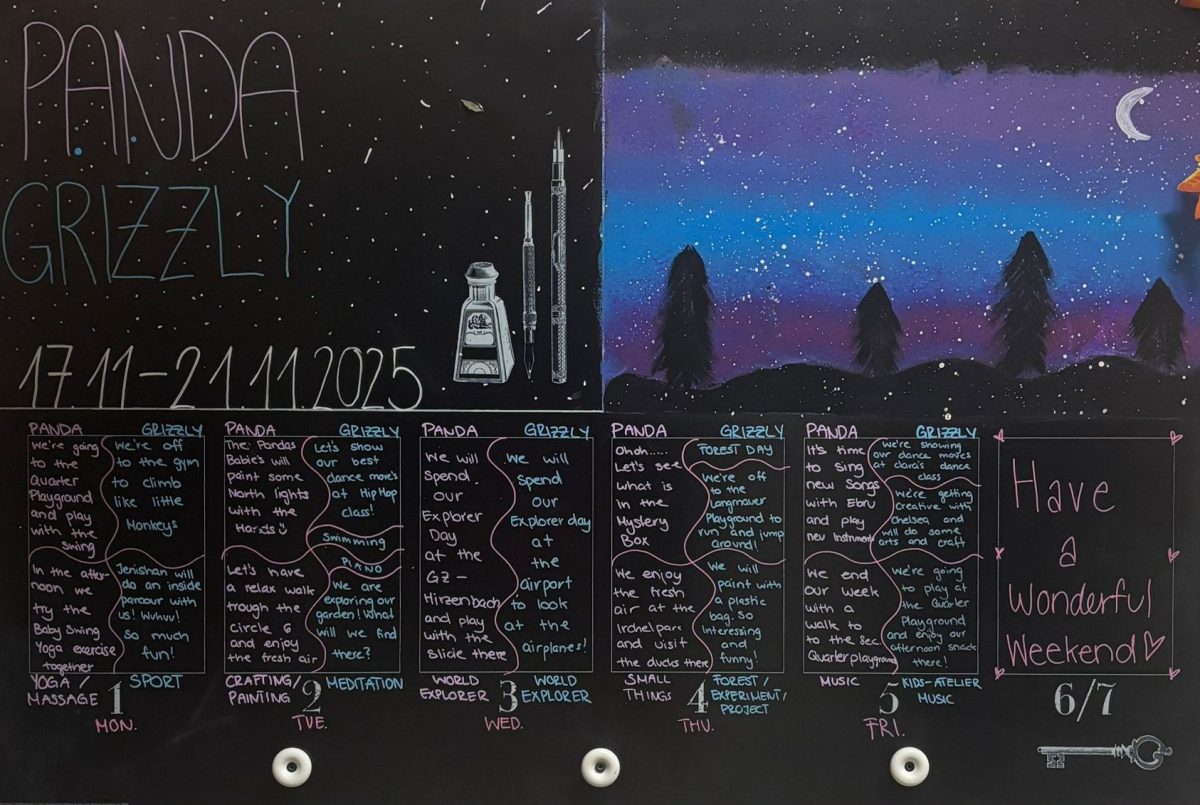 PANDA
GRIZZLY
17.11-21.11.2025
PANDA
We're going
to the
Quarter
Playground
and play
with the
Swing
In the after-
noon we
try the
Baby Swing
Yoga exercise
together
YOGA /
MASSAGE
GRIZZLY
We're off
to the gym
to climb
like little
Monkeys
Jenishan will
do an inside
parcour with
us! Wuhuu!
So much
fun!
SPORT
1
MON.
PANDA
The Pandas
Babie's will
paint some
North lights
with the
Hands
Let's have
a relax walk
trough the
Circle 6
and enjoy
the fresh air
CRAFTING/
PAINTING
GRIZZLY
Let's show
our best
dance move's
at Hip Hop
class!
Swimming
PIANO
We are
exploring our
garden! What
will we find
there?
MEDITATION
2
TUE.
PANDA
We will
Spend
our
Explorer
Day
at the
GZ-
Hirzenbach
and play
with the
Slide there
WORLD
EXPLORER
GRIZZLY
We will
spend
our
Explorer day
at
the
airport
to look
at the
airplanes!
WORLD
EXPLORER
3
WED.
PANDA
Ohoh.....
Let's see
what is
in the
Mystery
Box
We enjoy
the fresh
air at the
Irchelparc
and visit
the ducks there
SMALL
THINGS
GRIZZLY
FOREST DAY
We're off
to the
Langmauer
Playground to
run and jump
around!
We will
paint with
a plastic
bag. So
Interessing
and
funny!
FOREST /
EXPERIMENT/
PROJECT
4
THU.
PANDA
It's time
to Sing
new Songs
with Ebru
and play
new Instruments
We end
our week
with a
walk to
to the Sec.
Quarterplayground
MUSIC
GRIZZLY
We're showing
our dance moves
at dance
class
We're getting
creative with
Chelsea and
will do some
arts and craft
We're going
to play at
the Quarter
Playground
and enjoy our
afternoon snack
there!
KIDS-ATELIER
MUSIC
5
FRI.
Have
a
Wonderful
Weekend
6/7